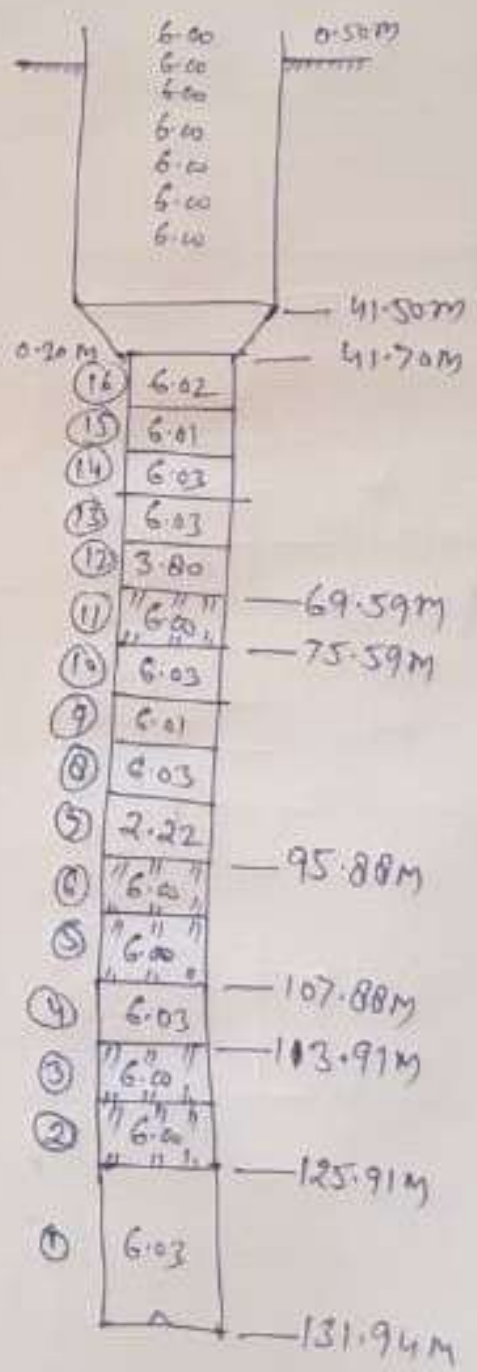 6.00 0.50M
6.00
6.00
6.00
6.00
6.00
6.00
41.50M
0.20M 41.70M
16 6.02
15 6.01
14 6.03
13 6.03
12 3.80
69.59M
11 6.00
75.59M
10 6.03
9 6.01
8 6.03
2.22
95.88M
6 6.00
5 6.00
107.88M
4 6.03
113.91M
3 6.00
2 6.00
125.91M
1 6.03
131.94M